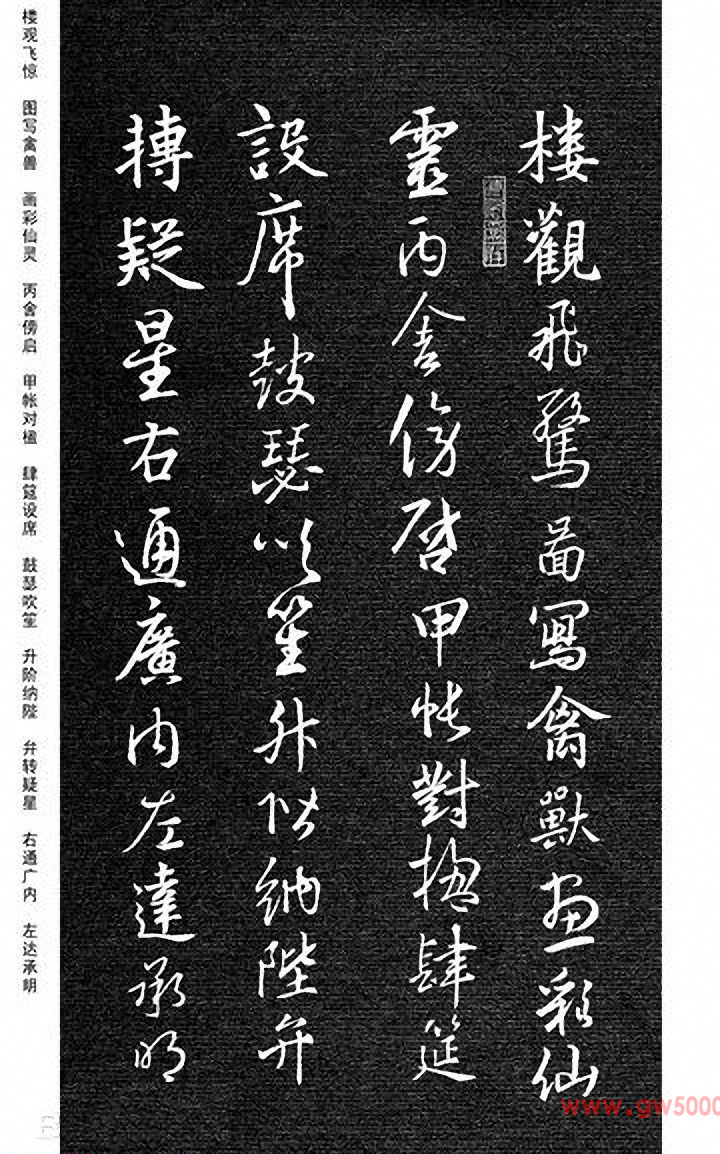 樓觀飛驚圖寫禽獸畫彩仙
靈丙舍傍啓甲帳對楹肆筵
設席鼓瑟吹笙升階納陛弁
轉疑星右通廣内左達承明
楼观飞惊 图写禽兽 画彩仙灵 丙舍傍启 甲帐对楹 肆筵设席 鼓瑟吹笙 升阶纳陛 弁转疑星 右通广内 左达承明
www.gw5000